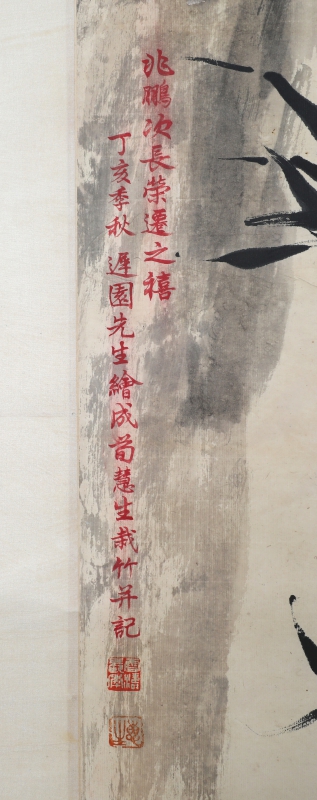 兆鵬次長榮遷之禧
丁亥季秋 遲園先生繪成荀慧生栽竹并記